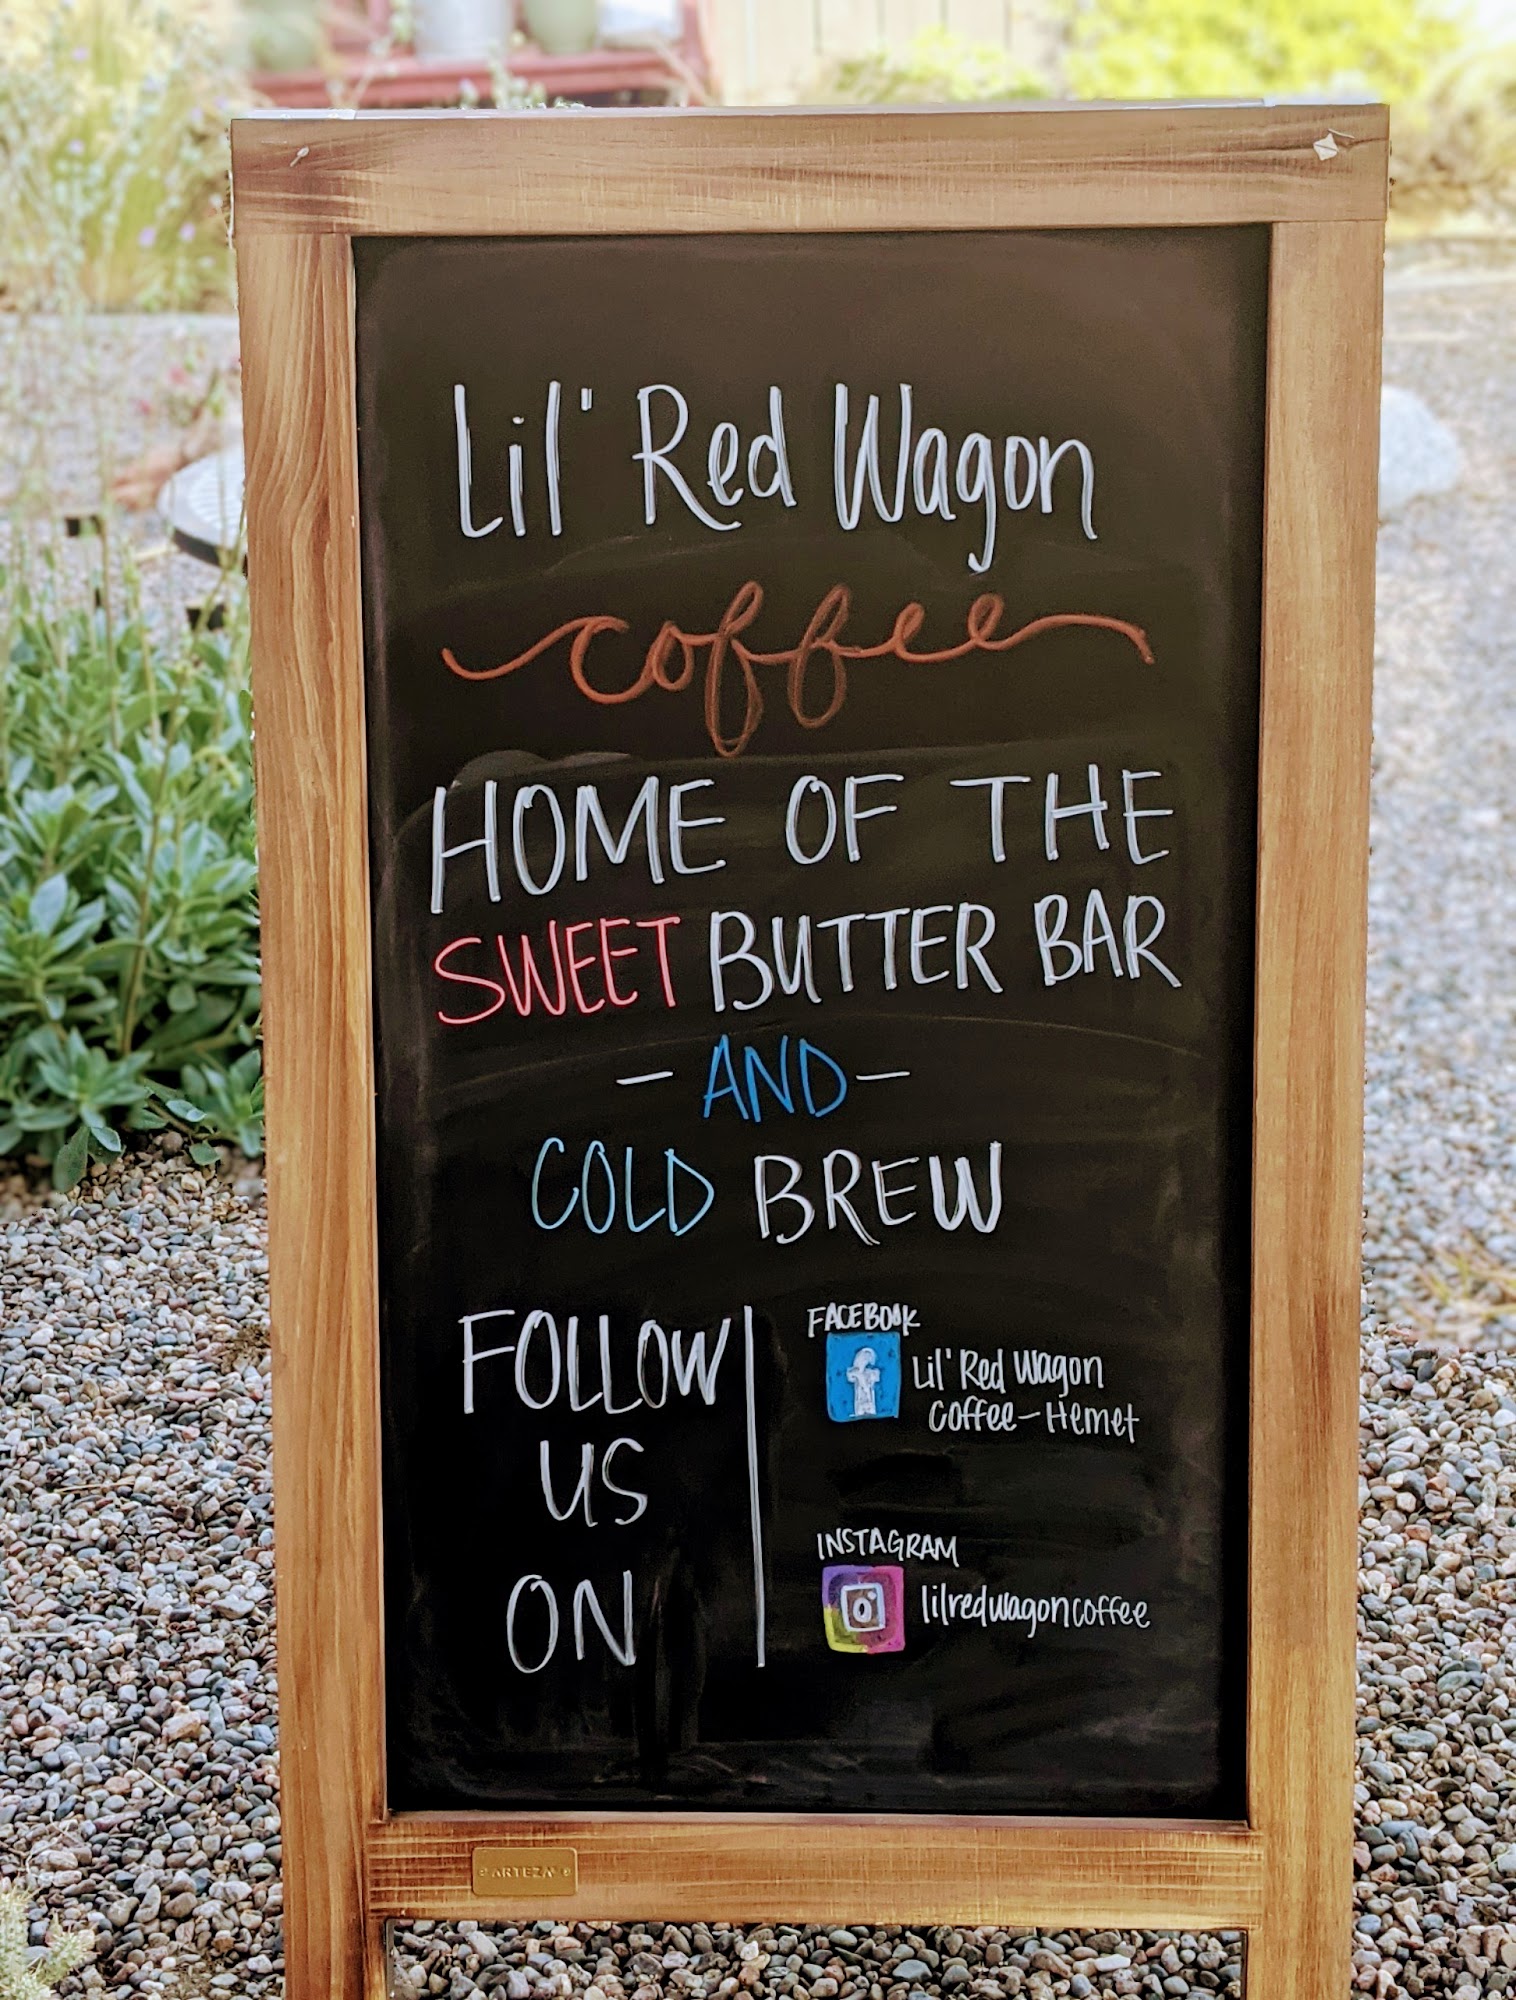 Lil' Red Wagon
coffee
HOME OF THE
SWEET BUTTER BAR
- AND -
COLD BREW
FOLLOW
US
ON
FACEBOOK
f Lil' Red Wagon
Coffee - Hemet
INSTAGRAM
lilredwagoncoffee
ARTEZA